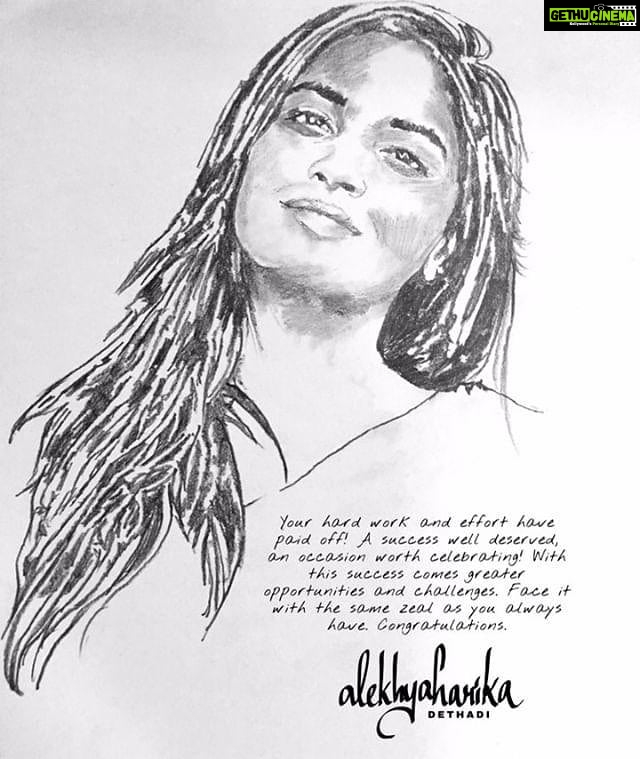 GETHUCINEMA
Kollywood's Personal Diary
Your hard work and effort have
paid off! A success well deserved,
an occasion worth celebrating! With
this success comes greater
opportunities and challenges. Face it
with the same zeal as you always
have. Congratulations.
alekhyaharika
DETHADI